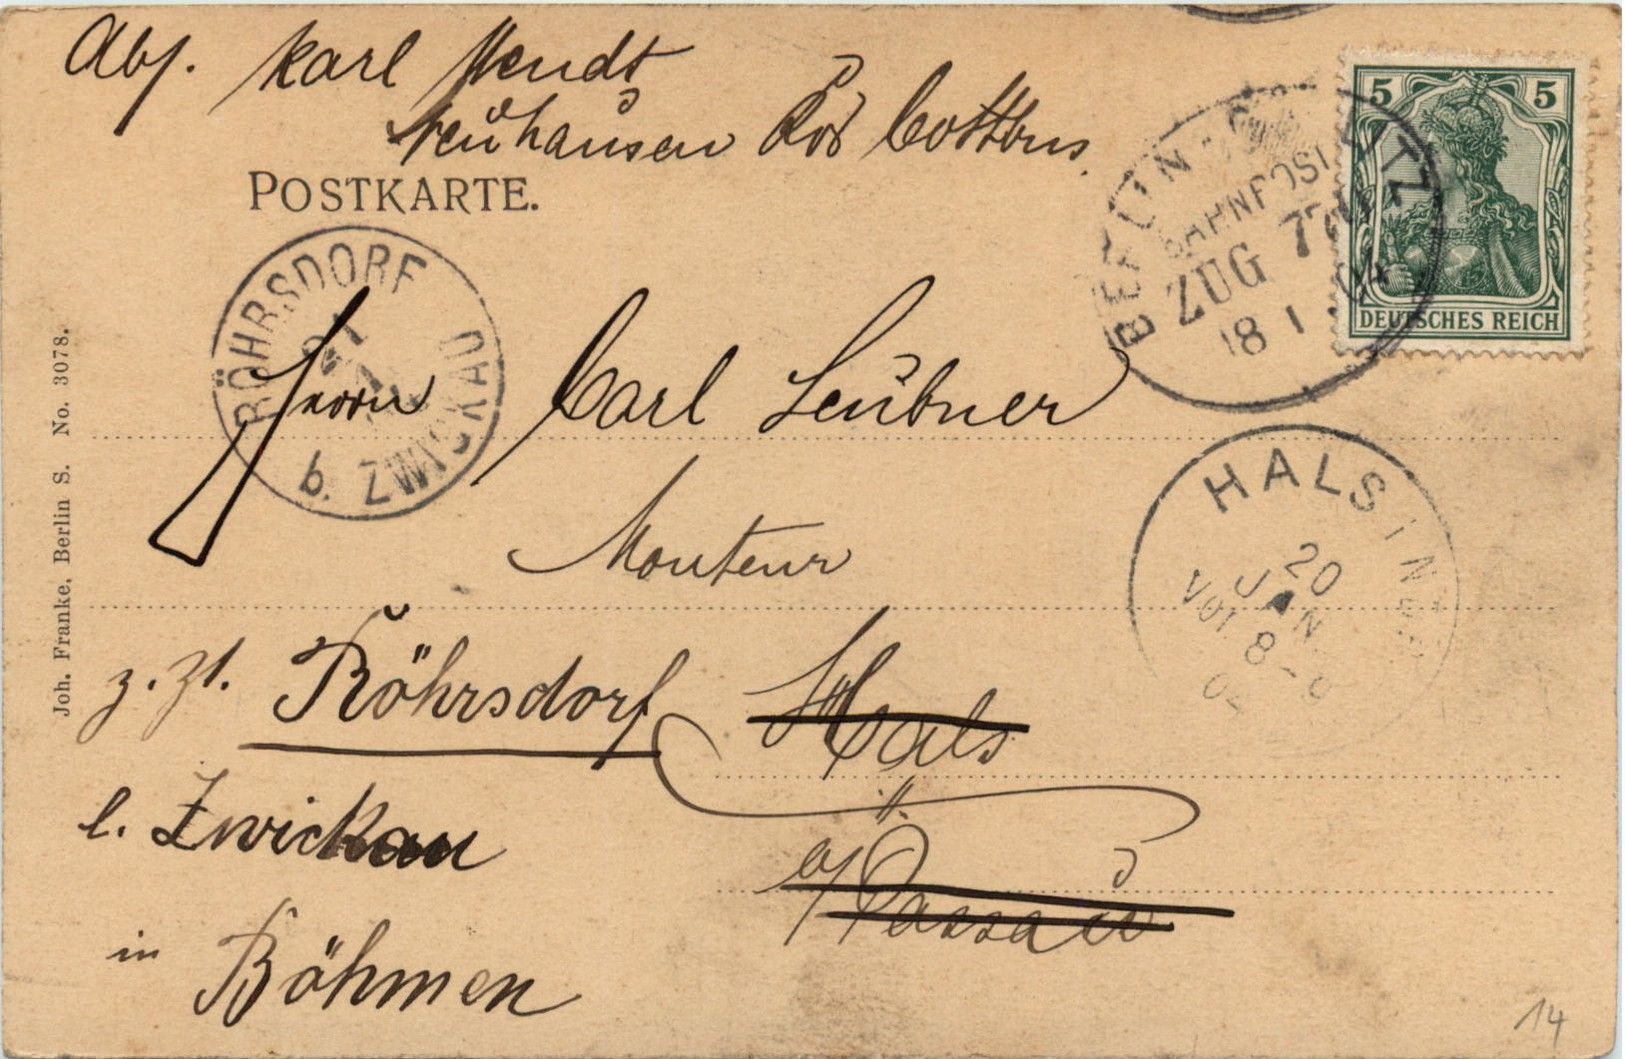 Abs. Karl Wendt
Neuhausen Bez Cottbus.
POSTKARTE.
5 5
DEUTSCHES REICH
BERLIN
BAHNPOST
ZUG
18 1 04
RÖHRSDORF
21
b. ZWICKAU
Herrn Carl Leubner
Monteur
HALS
20
JAN
VOR 8-9
z. Zt. Röhrsdorf Hals
b. Zwickau
a/ Passau
in Böhmen
Joh. Franke, Berlin S. No. 3078.
14